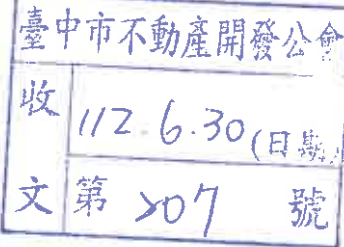 臺中市不動產開發公會
收 112.6.30(日期)
文 第 207 號